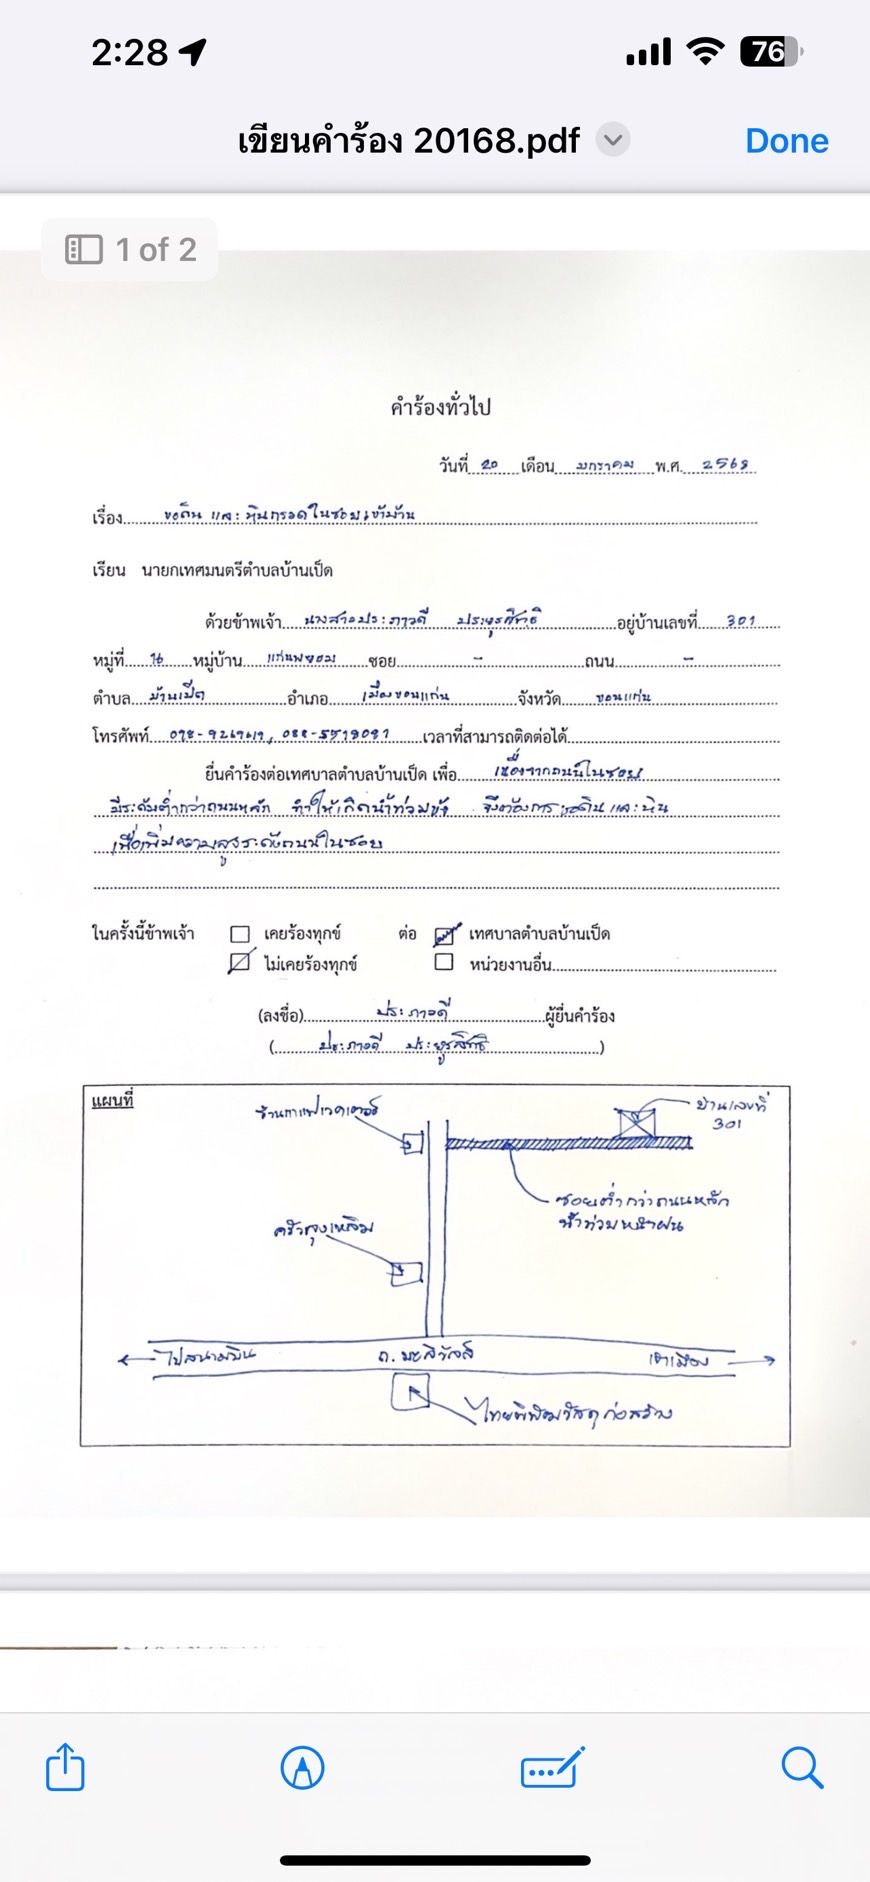 2:28
76
เขียนคำร้อง 20168.pdf
Done
1 of 2
คำร้องทั่วไป
วันที่ 20 เดือน มกราคม พ.ศ. 2568
เรื่อง ขอดิน และหินกรวดในซอยเข้าบ้าน
เรียน นายกเทศมนตรีตำบลบ้านเป็ด
ด้วยข้าพเจ้า นางสาวประภาวดี ประยูรสิทธิ อยู่บ้านเลขที่ 301
หมู่ที่ 16 หมู่บ้าน แก่นพยอม ซอย - ถนน -
ตำบล บ้านเป็ด อำเภอ เมืองขอนแก่น จังหวัด ขอนแก่น
โทรศัพท์ เวลาที่สามารถติดต่อได้
ยื่นคำร้องต่อเทศบาลตำบลบ้านเป็ด เพื่อ เนื่องจากถนนในซอย
มีระดับต่ำกว่าถนนหลัก ทำให้เกิดน้ำท่วมขัง จึงต้องการขอดินและหิน
เพื่อเพิ่มความสูงระดับถนนในซอย
ในครั้งนี้ข้าพเจ้า เคยร้องทุกข์ ต่อ เทศบาลตำบลบ้านเป็ด
ไม่เคยร้องทุกข์ หน่วยงานอื่น
(ลงชื่อ) ประภาวดี ผู้ยื่นคำร้อง
( ประภาวดี ประยูรสิทธิ )
แผนที่
ร้านกาแฟเวคเตอร์
บ้านเลขที่
301
ซอยต่ำกว่าถนนหลัก
น้ำท่วมหน้าฝน
ครัวลุงเหลิม
ไปสนามบิน ถ.มะลิวัลย์ เข้าเมือง
ไทยพิพัฒน์วัสดุก่อสร้าง